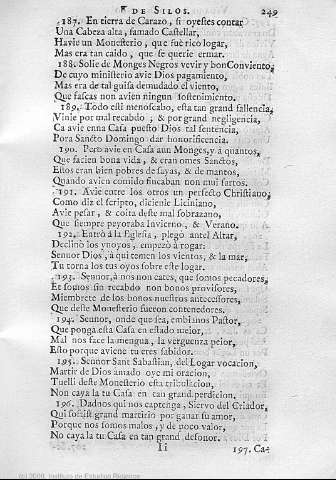 DE SILOS. 249
187. En tierra de Carazo, si oyestes contar
Una Cabeza alta, famado Castellar,
Havie un Monesterio, que fue rico logar,
Mas era tan caido, que se querie ermar.
188. Solie de Monges Negros vevir y bon Conviento,
De cuyo ministerio avie Dios pagamiento,
Mas era de tal guisa demudado el viento,
Que fascas non avien ningun sostenimiento.
189. Todo esti menoscabo, esta tan grand fallencia,
Vinie por mal recabdo; & por grand negligencia,
Ca avie enna Casa puesto Dios tal sentencia,
Pora Sancto Domingo dar honorificencia.
190. Pero avie en Casa aun Monges, y à quantos,
Que facien bona vida, & eran omes Sanctos,
Estos eran bien pobres de sayas, & de mantos,
Quando avien comido fincaban non mui fartos.
191. Avie entre los otros un perfecto Christiano,
Como diz el scripto, dicienle Liciniano,
Avie pesar, & coita deste mal sobrazano,
Que siempre peyoraba Invierno, & Verano.
192. Entrò à la Eglesia, plegò antel Altar,
Declinò los ynoyos, empezò à rogar:
Sennor Dios, à qui temen los vientos, & la mar,
Tu torna los tus oyos sobre este logar.
193. Sennor, à nos non cates, que somos pecadores,
Et somos sin recabdo non bonos provisores,
Miembrete de los bonos nuestros antecessores,
Que deste Monesterio fueron contenedores.
194. Sennor, onde que sea, embianos Pastor,
Que ponga esta Casa en estado meior,
Mal nos face la mengua, la verguenza peior,
Esto porque aviene tu eres sabidor.
195. Sennor Sant Sabastian, del Logar vocacion,
Martir de Dios amado oye mi oracion,
Tuelli deste Monesterio esta tribulacion,
Non caya la tu Casa en tan grand perdicion.
196. Dadnos qui nos captenga, Siervo del Criador,
Qui sofrist grand martirio por ganar su amor,
Porque nos somos malos, y de poco valor,
No caya la tu Casa en tan grand desonor.
Ii 197. Ca-
(c) 2006, Instituto de Estudios Riojanos